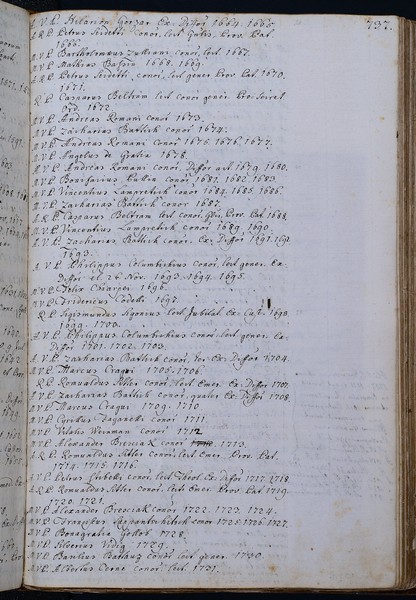 737.
A. V. P. Hilarion Gorzar Ex. Diffor 1664. 1665.
A. R. P. Petrus Sirdetti conoi, Lect. Prov. Pat.
1666.
A. V. P. Bartholomæus conoi, Lect. 1667.
A. V. P. Mathias Bassin 1668. 1669.
A. R. P. Petrus Sirdetti, conoi, Lect. gener. Prov. Pat. 1670.
1671.
R. P. Casparus Beltram Lect. conoi gener.
1672.
A. V. P. Andreas Romani conoi 1673.
A. V. P. Zacharias Batlick conoi 1674.
A. V. P. Andreas Romani conoi 1675. 1676. 1677.
A. V. P. Angelus de Gratia 1678.
A. V. P. Andreas Romani conoi, Diffor act. 1679. 1680.
A. V. P. Bonifacius conoi 1681. 1682. 1683.
A. V. P. Vincentius Lampretich conoi 1684. 1685. 1686.
A. V. P. Zacharias Batlick conor 1687.
A. R. P. Casparus Beltram Lect. conoi, Prov. Pat. 1688.
A. V. P. Vincentius Lampretich conoi 1689. 1690.
A. V. P. Zacharias Batlick conoi. Ex. Diffor 1691.
1693.
A. V. P. Philippus Columberinus conoi, Lect. gener. Ex.
Diffor et 26 Nov. 1693. 1694. 1695.
A. V. P. Felix 1696.
A. V. P. Fridericus 1697.
R. P. Sigismundus Sigonius Lect. Jubilat. Ex. Cust. 1698.
1699. 1700.
A. V. P. Philippus Columberinus conoi, Lect. gener. Ex.
Diffor 1701. 1702. 1703.
A. V. P. Zacharias Batlick conoi, Ter Ex. Diffor 1704.
A. V. P. Marcus Cragui 1705. 1706.
R. P. Romualdus Siller conoi, Lect. Emer. Ex. Diffor 1707.
A. V. P. Zacharias Batlick conoi, quater Ex. Diffor 1708.
A. V. P. Marcus Cragui 1709. 1710
A. V. P. Cyrillus conoi 1711.
A. V. P. Vitalis Weinman conoi 1712
A. V. P. Alexander Bresciak conoi 1713.
A. R. P. Romualdus Siller conoi, Lect. Emer. Prov. Pat.
1714. 1715. 1716.
A. V. P. Petrus conoi, Lect. Theol. Ex. Diffor 1717. 1718.
A. R. P. Romualdus Siller, conoi, Lect. Emer. Prov. Pat. 1719.
1720. 1721.
A. V. P. Alexander Bresciak conor 1722. 1723. 1724.
A. V. P. Franciscus conor 1725. 1726. 1727.
A. V. P. Bonagratia 1728.
A. V. P. Silverius Vidig 1729.
A. V. P. Basilius conoi Lect. gener. 1730.
A. V. P. Albertus Cerne conoi, Lect. 1731.